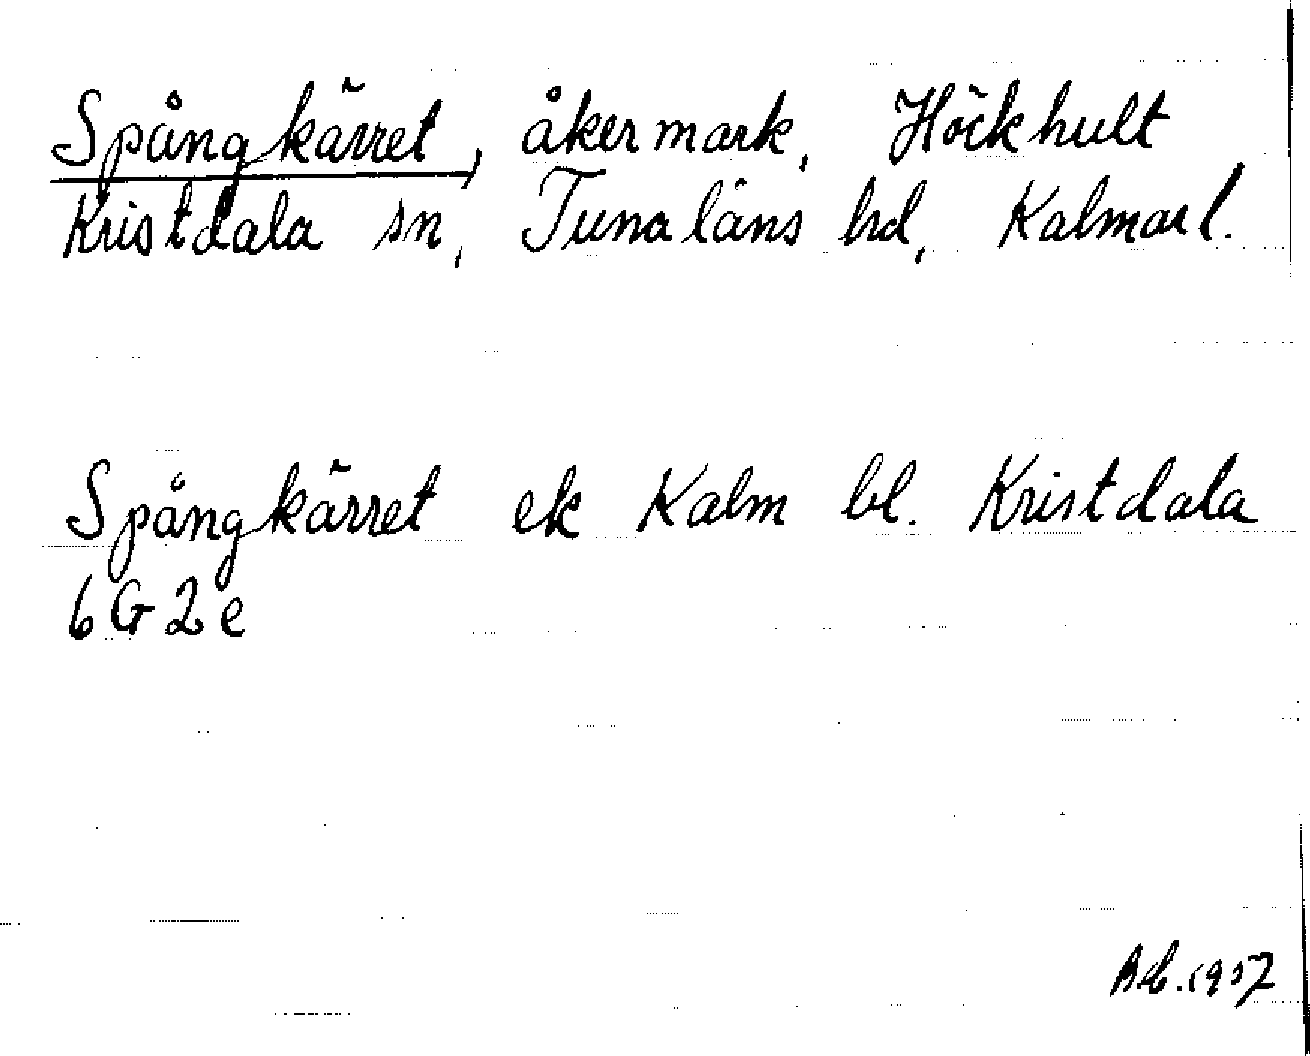 Spångkärret, åkermark, Höckhult
Kristdala sn, Tunaläns hd, Kalmar l.
Spångkärret ek Kalm bl. Kristdala
6G2e
1957